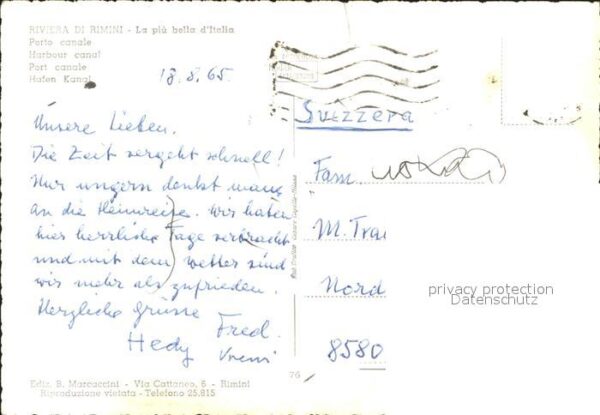 RIVIERA DI RIMINI - La più bella d'Italia
Porto canale
Harbour canal
Port canale
Hafen Kanal
18.8.65.
Unsere Lieben.
Die Zeit vergeht schnell!
Nur ungern denkt man
an die Heimreise. Wir haben
hier herrliche Tage verbracht
und mit dem Wetter sind
wir mehr als zufrieden.
Herzliche Grüsse
Fred.
Hedy Vreni
Svizzera
Fam.
M. Trau
Nord
8580
privacy protection
Datenschutz
76
Ediz. B. Marcaccini - Via Cattaneo, 6 - Rimini
Riproduzione vietata - Telefono 25.815